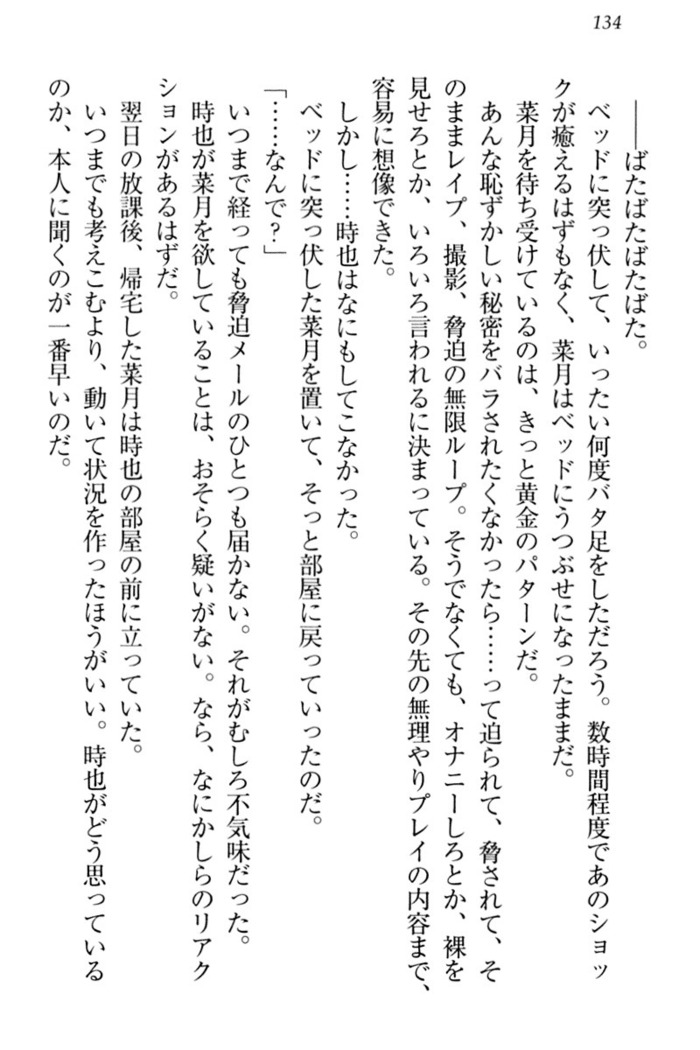 134
――ばたばたばたばた。
ベッドに突っ伏して、いったい何度バタ足をしただろう。数時間程度であのショッ
クが癒えるはずもなく、菜月はベッドにうつぶせになったままだ。
菜月を待ち受けているのは、きっと黄金のパターンだ。
あんな恥ずかしい秘密をバラされたくなかったら……って迫られて、脅されて、そ
のままレイプ、撮影、脅迫の無限ループ。そうでなくても、オナニーしろとか、裸を
見せろとか、いろいろ言われるに決まっている。その先の無理やりプレイの内容まで、
容易に想像できた。
しかし……時也はなにもしてこなかった。
ベッドに突っ伏した菜月を置いて、そっと部屋に戻っていったのだ。
「……なんで？」
いつまで経っても脅迫メールのひとつも届かない。それがむしろ不気味だった。
時也が菜月を欲していることは、おそらく疑いがない。なら、なにかしらのリアク
ションがあるはずだ。
翌日の放課後、帰宅した菜月は時也の部屋の前に立っていた。
いつまでも考えこむより、動いて状況を作ったほうがいい。時也がどう思っている
のか、本人に聞くのが一番早いのだ。